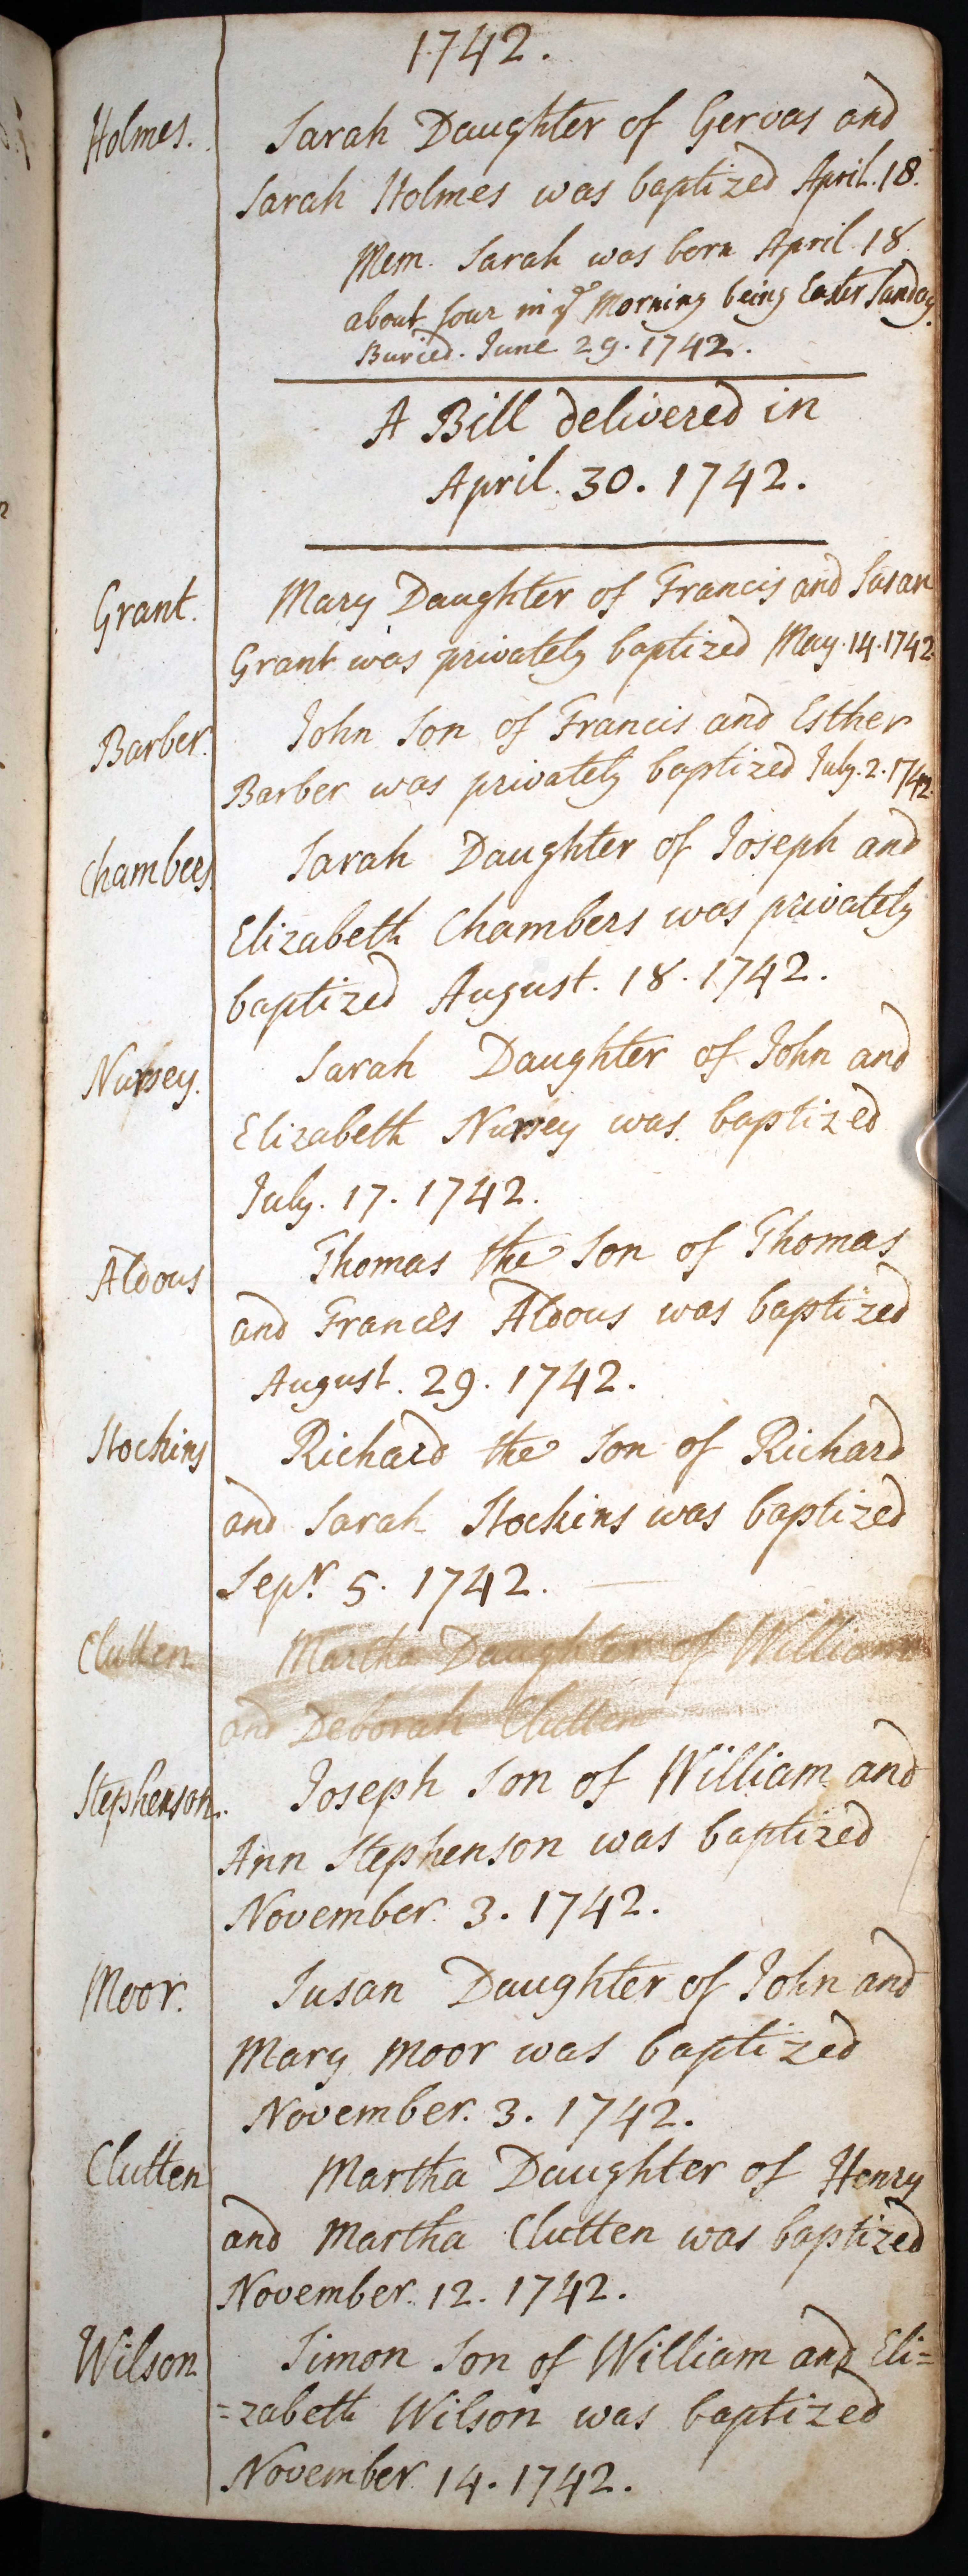 1742.
Holmes. Sarah Daughter of Gervas and
Sarah Holmes was baptized April. 18.
Mem. Sarah was born April 18
about four in yͤ Morning being Easter Sunday.
Buried. June 29. 1742.
A Bill delivered in
April. 30. 1742.
Grant. Mary Daughter of Francis and Susan
Grant was privately baptized May. 14. 1742
Barber. John Son of Francis and Esther
Barber was privately baptized July. 2. 1742.
Chambers. Sarah Daughter of Joseph and
Elizabeth Chambers was privately
baptized August. 18. 1742.
Nursey. Sarah Daughter of John and
Elizabeth Nursey was baptized
July. 17. 1742.
Aldous Thomas the Son of Thomas
and Frances Aldous was baptized
August. 29. 1742.
Stockins Richard the Son of Richard
and Sarah Stockins was baptized
Sepʳ. 5. 1742.
Clutten Martha Daughter of William
and Deborah Clutten
Stephenson. Joseph Son of William and
Ann Stephenson was baptized
November. 3. 1742.
Moor. Susan Daughter of John and
Mary Moor was baptized
November. 3. 1742.
Clutten Martha Daughter of Henry
and Martha Clutten was baptized
November. 12. 1742.
Wilson Simon Son of William and Eli=
=zabeth Wilson was baptized
November 14. 1742.